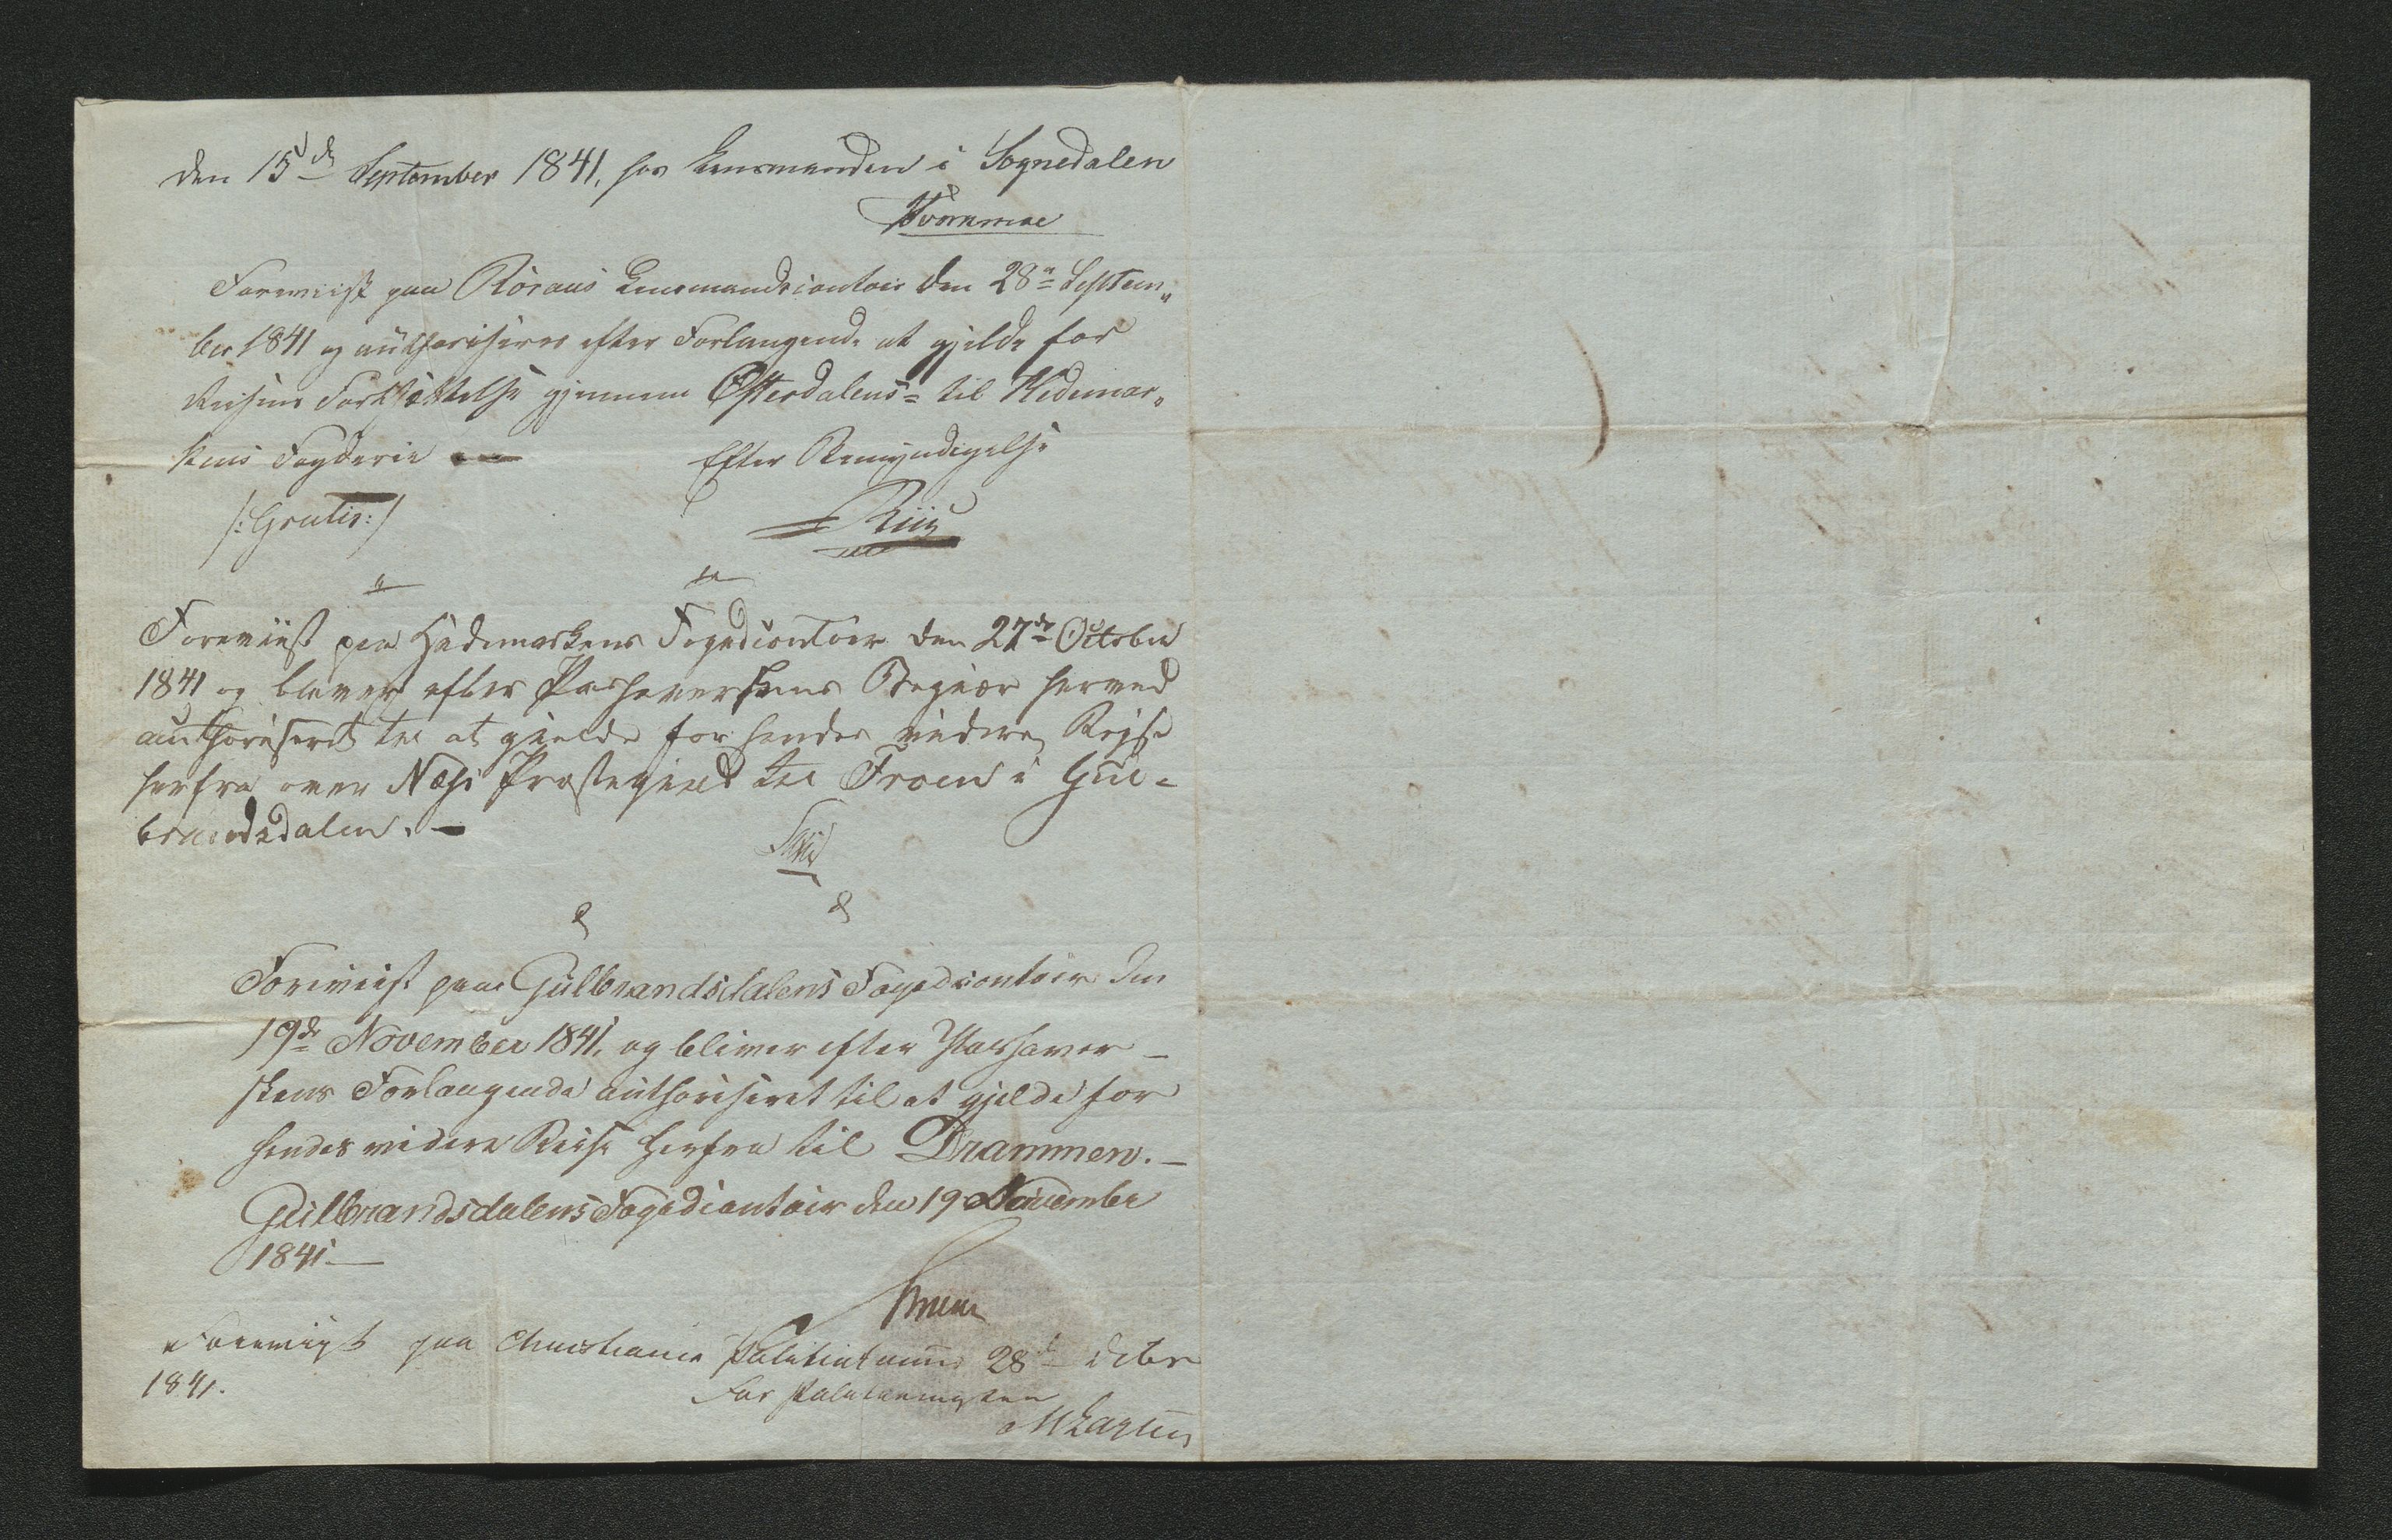 den 15de September 1841, hos Lensmanden i Sognedalen
Foreviist paa Röraas Lensmandscontoir den 28de Septem„
ber 1841 og authoriseres efter Forlangende at gjelde for
Reisens Fortsættelse gjennem Østerdalens- til Hedemar„
kens Fogderie
Efter Bemyndigelse
/:Gratis:/
Foreviist paa Hedemarkens Fogedcontoir den 27de October
1841 og bliver efter Pashaverskens Begiær herved
authoriseret til at gielde for hendes videre Rejse
herfra over Næs Præstegield til Froen i Gul-
brandsdalen. -
Foreviist paa Gulbrandsdalens Fogedcontoir den
19de November 1841, og bliver efter Pashaver-
skens Forlangende authoriseret til at gjelde for
hendes videre Reise herfra til Drammen. -
Gulbrandsdalens Fogedcontoir den 19 November
1841 -
Foreviist paa Christiania Politikammer 28de Debr
1841.
For Politimesteren